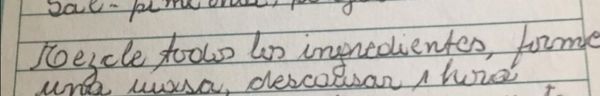 Sal - pimienta,
Mezcle todos los ingredientes, forme
una masa, descansar 1 hora